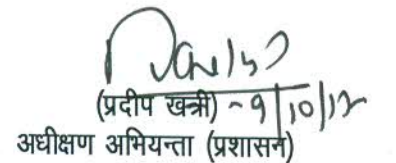 (प्रदीप खत्री) - 9/10/12
अधीक्षण अभियन्ता (प्रशासन)